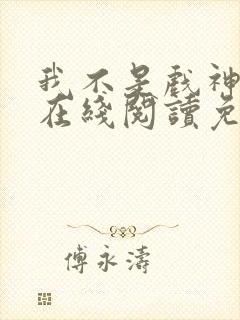 我不是戲神
在綫閱讀免
傅永濤